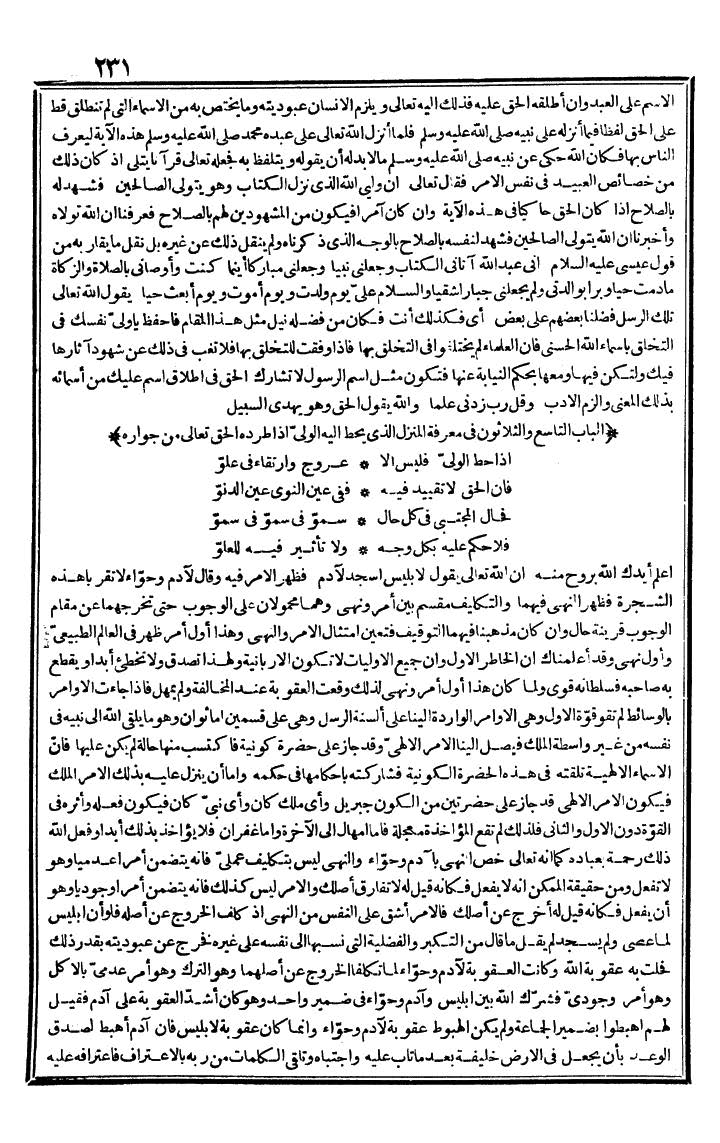 ٢٣١
الاسم على العبد وان أطلقه الحق عليه فذلك اليه تعالى ويلزم الانسان عبوديته وما يختص به من الاسماء التى لم تنطلق قط
على الحق لفظا فيما أنزله على نبيه صلى الله عليه وسلم فلما أنزل الله تعالى على عبده محمد صلى الله عليه وسلم هذه الآية ليعرف
الناس بها فكان الله حكى عن نبيه صلى الله عليه وسلم ما لا بد له أن يقوله ويتلفظ به فجعله تعالى قرآنا يتلى اذ كان ذلك
من خصائص العبيد فى نفس الامر فقال تعالى ان وليى الله الذى نزل الكتاب وهو يتولى الصالحين فشهد له
بالصلاح اذا كان الحق حاكيا فى هذه الآية وان كان آمرا فيكون من المشهودين لهم بالصلاح فعرفنا ان الله تولاه
وأخبرنا ان الله يتولى الصالحين فشهد لنفسه بالصلاح بالوجه الذى ذكرناه ولم ينقل ذلك عن غيره بل نقل ما يقاربه من
قول عيسى عليه السلام انى عبد الله آتانى الكتاب وجعلنى نبيا وجعلنى مباركا أينما كنت وأوصانى بالصلاة والزكاة
ما دمت حيا وبرا بوالدتى ولم يجعلنى جبارا شقيا والسلام علىّ يوم ولدت ويوم أموت ويوم أبعث حيا يقول الله تعالى
تلك الرسل فضلنا بعضهم على بعض أى فكذلك أنت فكان من فضله نيل مثل هذا المقام فاحفظ ياولىّ نفسك فى
التخلق باسماء الله الحسنى فان العلماء لم يختلفوا فى التخلق بها فاذا وفقت للتخلق بها فلا تغب فى ذلك عن شهود آثارها
فيك ولتكن فيها ومعها بحكم النيابة عنها فتكون مثل اسم الرسول لا تشارك الحق فى اطلاق اسم عليك من أسمائه
بذلك المعنى والزم الادب وقل رب زدنى علما والله يقول الحق وهو يهدى السبيل
﴿الباب التاسع والثلاثون فى معرفة المنزل الذى يحط اليه الولىّ اذا طرده الحق تعالى من جواره﴾
اذا حط الولىّ فليس الا * عروج وارتقاء فى علوّ
فان الحق لا تقييد فيه * ففى عين النوى عين الدنوّ
فحال المجتبى فى كل حال * سموّ فى سموّ فى سموّ
فلا حكم عليه بكل وجه * ولا تأثير فيه للعلوّ
اعلم أيدك الله بروح منه ان الله تعالى يقول لابليس اسجد لآدم فظهر الامر فيه وقال لآدم وحوّاء لا تقربا هذه
الشجرة فظهر النهى فيهما والتكليف مقسم بين أمر ونهى وهما محمولان على الوجوب حتى تخرجهما عن مقام
الوجوب قرينة حال وان كان مذهبنا فيهما التوقيف فتعين امتثال الامر والنهى وهذا أول أمر ظهر فى العالم الطبيعىّ
وأول نهى وقد أعلمناك ان الخاطر الاول وان جميع الاوليات لا تكون الا ربانية ولهذا تصدق ولا تخطئ أبدا ويقطع
به صاحبه فسلطانه قوى ولما كان هذا أول أمر ونهى لذلك وقعت العقوبة عند المخالفة ولم يمهل فاذا جاءت الاوامر
بالوسائط لم تقو قوة الاول وهى الاوامر الواردة الينا على ألسنة الرسل وهى على قسمين اما ثوان وهو ما يلقى الله الى نبيه فى
نفسه من غير واسطة الملك فيصل الينا الامر الالهىّ وقد جاز على حضرة كونية فاكتسب منها حالة لم يكن عليها فانّ
الاسماء الالهية تلقته فى هذه الحضرة الكونية فشاركته باحكامها فى حكمه واما أن ينزل عليه بذلك الامر الملك
فيكون الامر الالهى قد جاز على حضرتين من الكون جبريل وأى ملك كان وأى نبىّ كان فيكون فعله وأثره فى
القوّة دون الاول والثانى فلذلك لم تقع المؤاخذة معجلة فاما امهال الى الآخرة واما غفران فلا يؤاخذ بذلك أبدا وفعل الله
ذلك رحمة بعباده كما انه تعالى خص النهى بآدم وحوّاء والنهى ليس بتكليف عملىّ فانه يتضمن أمرا عدميا وهو
لا تفعل ومن حقيقة الممكن انه لا يفعل فكانه قيل له لا تفارق أصلك والامر ليس كذلك فانه يتضمن أمرا وجوديا وهو
أن يفعل فكانه قيل له أخرج عن أصلك فالامر أشق على النفس من النهى اذ كلف الخروج عن أصله فلو أن ابليس
لما عصى ولم يسجد لم يقل ما قال من التكبر والفضلية التى نسبها الى نفسه على غيره فخرج عن عبوديته بقدر ذلك
فحلت به عقوبة الله وكانت العقوبة لآدم وحوّاء لما تكلفا الخروج عن أصلهما وهو الترك وهو أمر عدمىّ بالاكل
وهو أمر وجودىّ فشرّك الله بين ابليس وآدم وحوّاء فى ضمير واحد وهو كان أشدّ العقوبة على آدم فقيل
لهم اهبطوا بضمير الجماعة ولم يكن الهبوط عقوبة لآدم وحوّاء وانما كان عقوبة لابليس فان آدم أهبط لصدق
الوعد بأن يجعل فى الارض خليفة بعد ما تاب عليه واجتباه وتلقى الكلمات من ربه بالاعتراف فاعترافه عليه